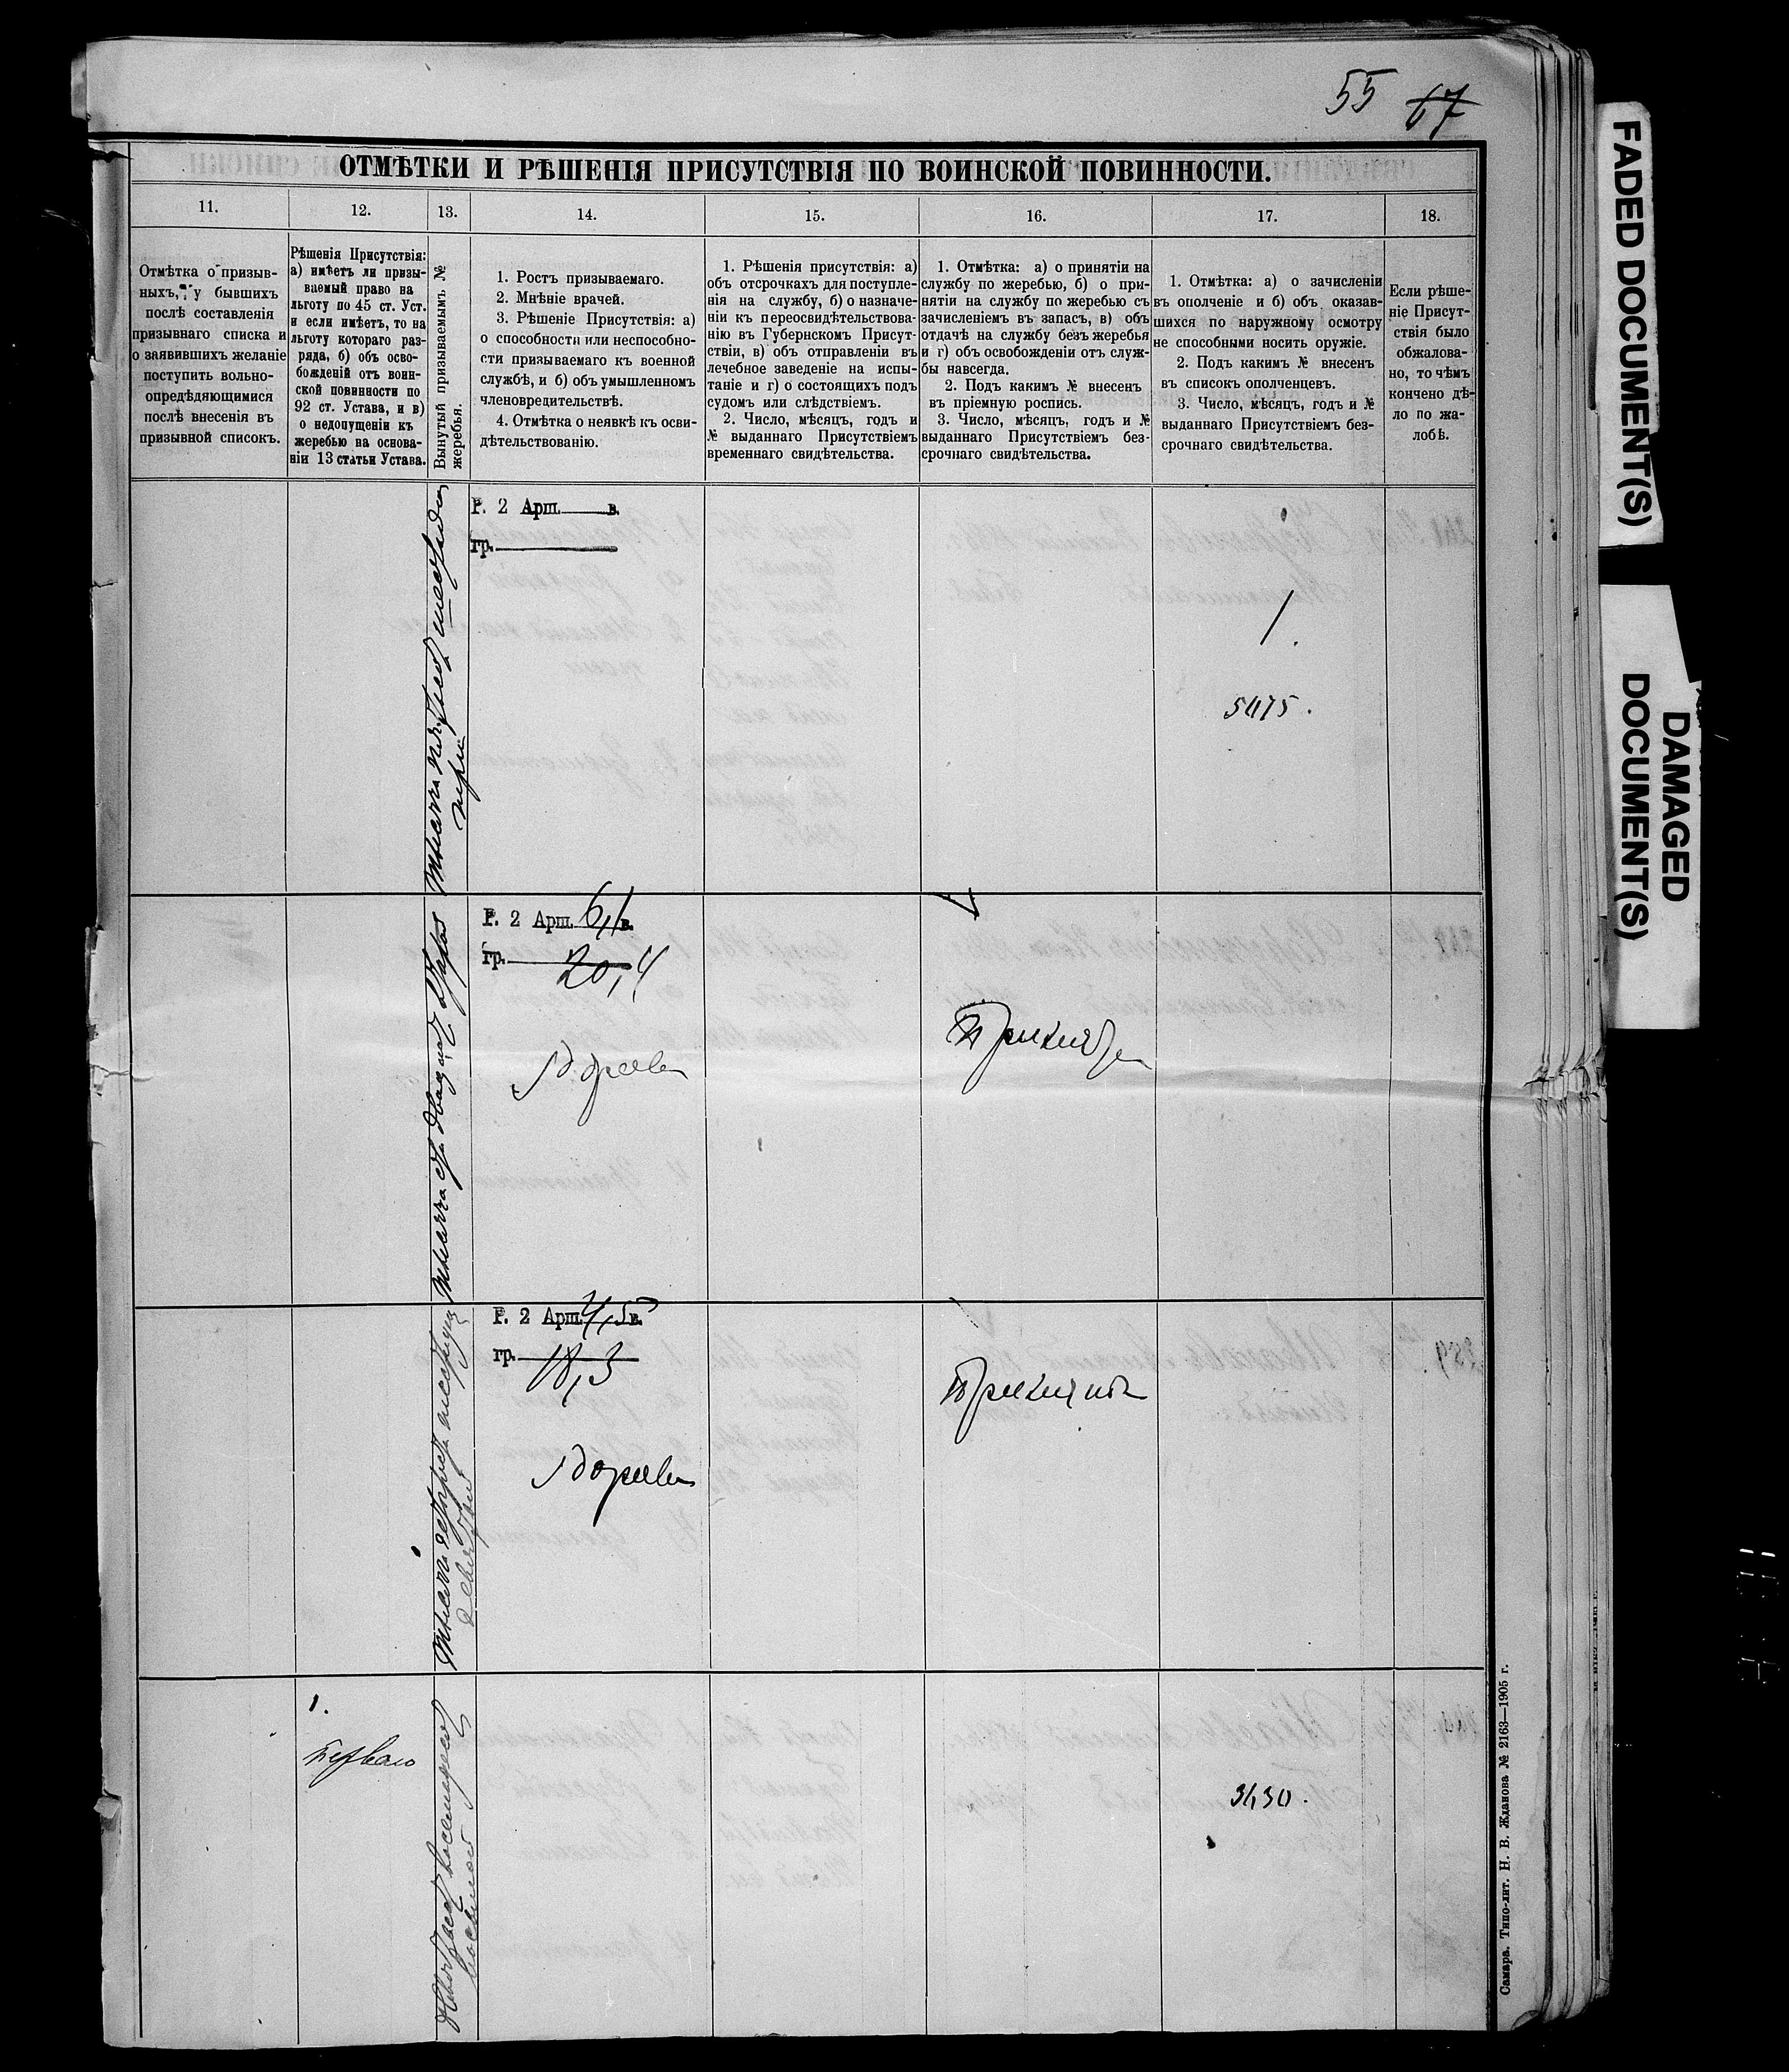 55 67
ОТМѢТКИ И РѢШЕНІЯ ПРИСУТСТВІЯ ПО ВОИНСКОЙ ПОВИННОСТИ.
11.
12.
13.
14.
15.
16.
17.
18.
Отмѣтка о призыв-
ныхъ, у бывшихъ
послѣ составленія
призывнаго списка и
о заявившихъ желаніе
поступить вольно-
опредѣдяющимися
послѣ внесенія въ
призывной списокъ.
Рѣшенія Присутствія:
а) имѣетъ ли призы-
ваемый право на
льготу по 45 ст. Уст.
и если имѣетъ, то на
льготу котораго раз-
ряда, б) объ осво-
божденій отъ воин-
ской повинности по
92 ст. Устава, и в)
о недопущеніи къ
жеребью на основа-
ніи 13 статьи Устава.
Вынутый призываемымъ №
жеребья.
1. Ростъ призываемаго.
2. Мнѣніе врачей.
3. Рѣшеніе Присутствія: а)
о способности или неспособно-
сти призываемаго къ военной
службѣ, и б) объ умышленномъ
членовредительствѣ.
4. Отмѣтка о неявкѣ къ осви-
дѣтельствованію.
1. Рѣшенія присутствія: а)
объ отсрочкахъ для поступле-
нія на службу, б) о назначе-
ніи къ переосвидѣтельствова-
нію въ Губернскомъ Присут-
ствіи, в) объ отправленіи въ
лечебное заведеніе на испы-
таніе и г) о состоящихъ подъ
судомъ или слѣдствіемъ.
2. Число, мѣсяцъ, годъ и
№ выданнаго Присутствіемъ
временнаго свидѣтельства.
1. Отмѣтка: а) о принятіи на
службу по жеребью, б) о при-
нятіи на службу по жеребью съ
зачисленіемъ въ запасъ, в) объ
отдачѣ на службу безъ жеребья
и г) объ освобожденіи отъ служ-
бы навсегда.
2. Подъ какимъ № внесенъ
въ пріемную роспись.
3. Число, мѣсяцъ, годъ и №
выданнаго Присутствіемъ без-
срочнаго свидѣтельства.
1. Отмѣтка: а) о зачисленіи
въ ополченіе и б) объ оказав-
шихся по наружному осмотру
не способными носить оружіе.
2. Подъ какимъ № внесенъ
въ списокъ ополченцевъ.
3. Число, мѣсяцъ, годъ и №
выданнаго Присутствіемъ без-
срочнаго свидѣтельства.
Если рѣше-
ніе Присут-
ствія было
обжалова-
но, то чѣмъ
кончено дѣ-
ло по жа-
лобѣ.
Р. 2 Арш. в.
гр.
1
5475.
Р. 2 Арш. 6,1 в.
гр. 20,4
Здоровъ
Принятъ
Р. 2 Арш. 4,5 в.
гр. 18,3
Здоровъ
Принятъ
1.
перваго
3430.
Самара. Типо-лит. Н. В. Жданова № 2163—1905 г.
FADED DOCUMENT(S)
DAMAGED
DOCUMENT(S)